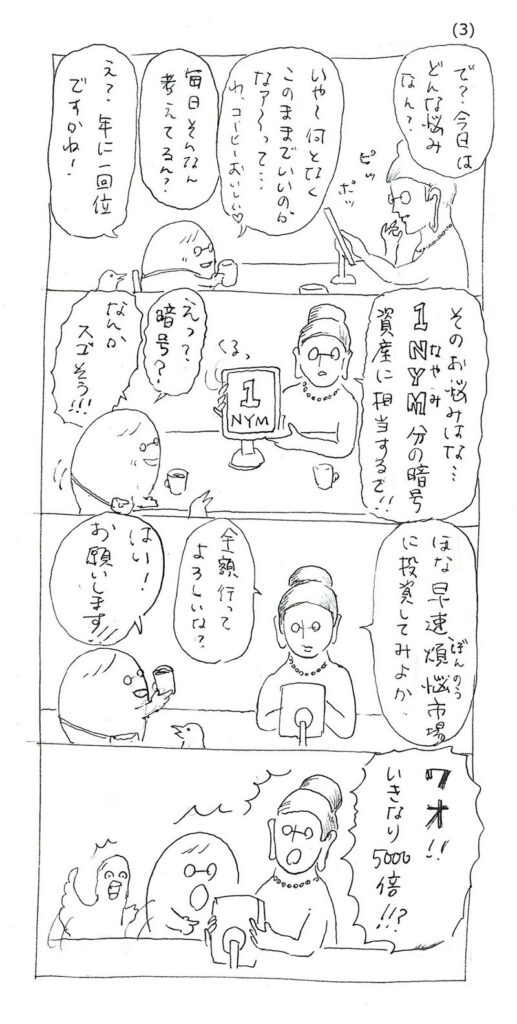 (3)
で？今日は
どんな悩み
なん？
ピッ
ポッ
いや〜何となく
このままでいいのか
なァ〜って…
わ、コーヒーおいしい♡
毎日そんなん
考えてるん？
え？年に一回位
ですかね！
そのお悩みはな…
1NYM分の暗号
なやみ
資産に相当するで!!
くるっ
1
NYM
えっ？
暗号？
なんか
スゴそう!!!
ほな早速煩悩市場
ぼんのう
に投資してみよか
全額行って
よろしいな？
はい！
お願いします
ワオ!!
いきなり5000倍!!!?